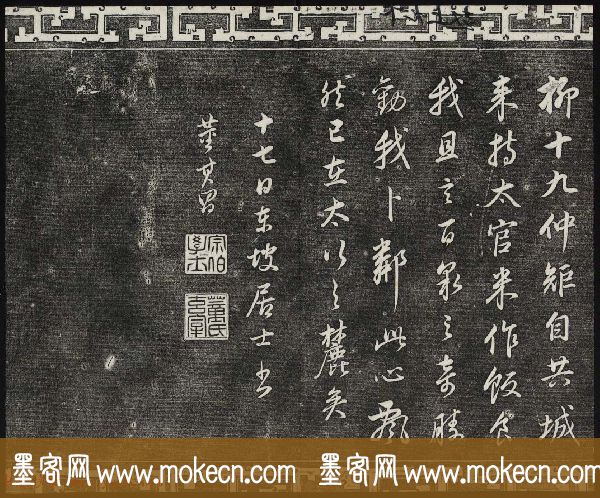 柳十九仲矩自共城
来持太官米作飯食
我且言百泉之奇勝
勸我卜鄰此心飄
然已在太行之麓矣
十七日东坡居士书
董其昌
宗伯學士
董氏玄宰
墨客网 www.mokecn.com 墨客网 www.mokecn.com